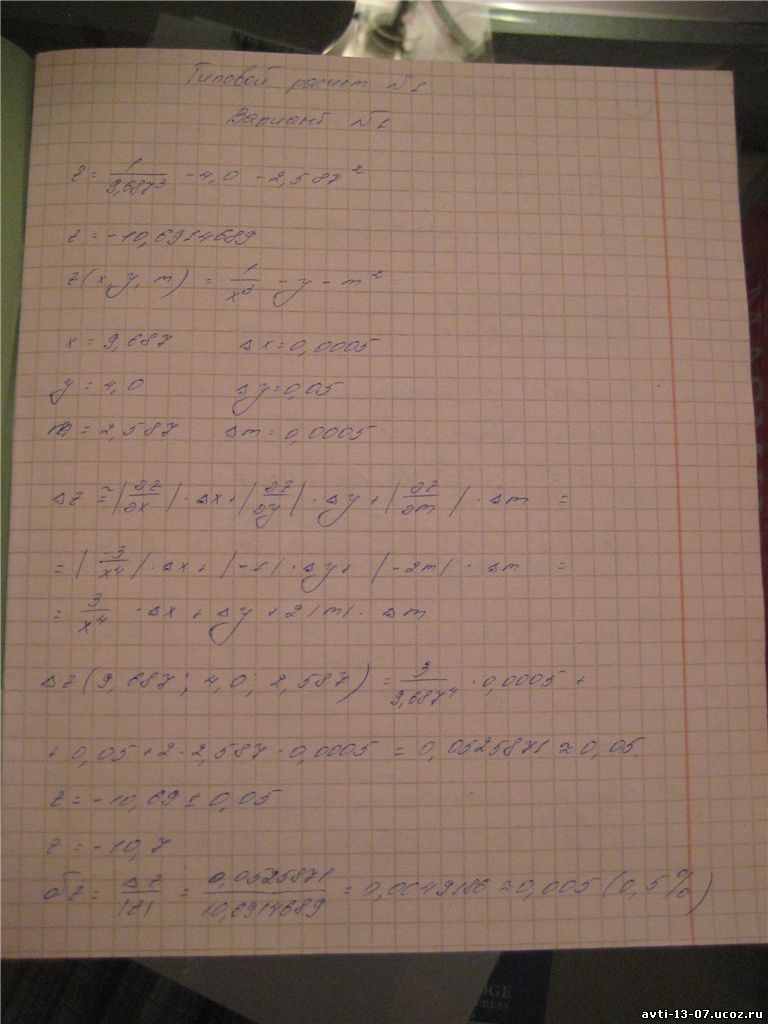 Типовой расчёт №1
Вариант №1
z = 1/9,687³ - 4,0 - 2,587²
z = -10,6914689
z(x, y, m) = 1/x³ - y - m²
x = 9,687 Δx = 0,0005
y = 4,0 Δy = 0,05
m = 2,587 Δm = 0,0005
Δz ≅ |∂z/∂x| · Δx + |∂z/∂y| · Δy + |∂z/∂m| · Δm =
= |-3/x⁴| · Δx + |-1| · Δy + |-2m| · Δm =
= 3/x⁴ · Δx + Δy + 2|m| · Δm
Δz(9,687; 4,0; 2,587) = 3/9,687⁴ · 0,0005 +
+ 0,05 + 2 · 2,587 · 0,0005 = 0,0525871 ≈ 0,05.
z = -10,69 ± 0,05
z = -10,7
δz = Δz/|z| = 0,0525871/10,6914689 = 0,0049186 ≈ 0,005 (0,5%)
GE
RESS
avti-13-07.ucoz.ru